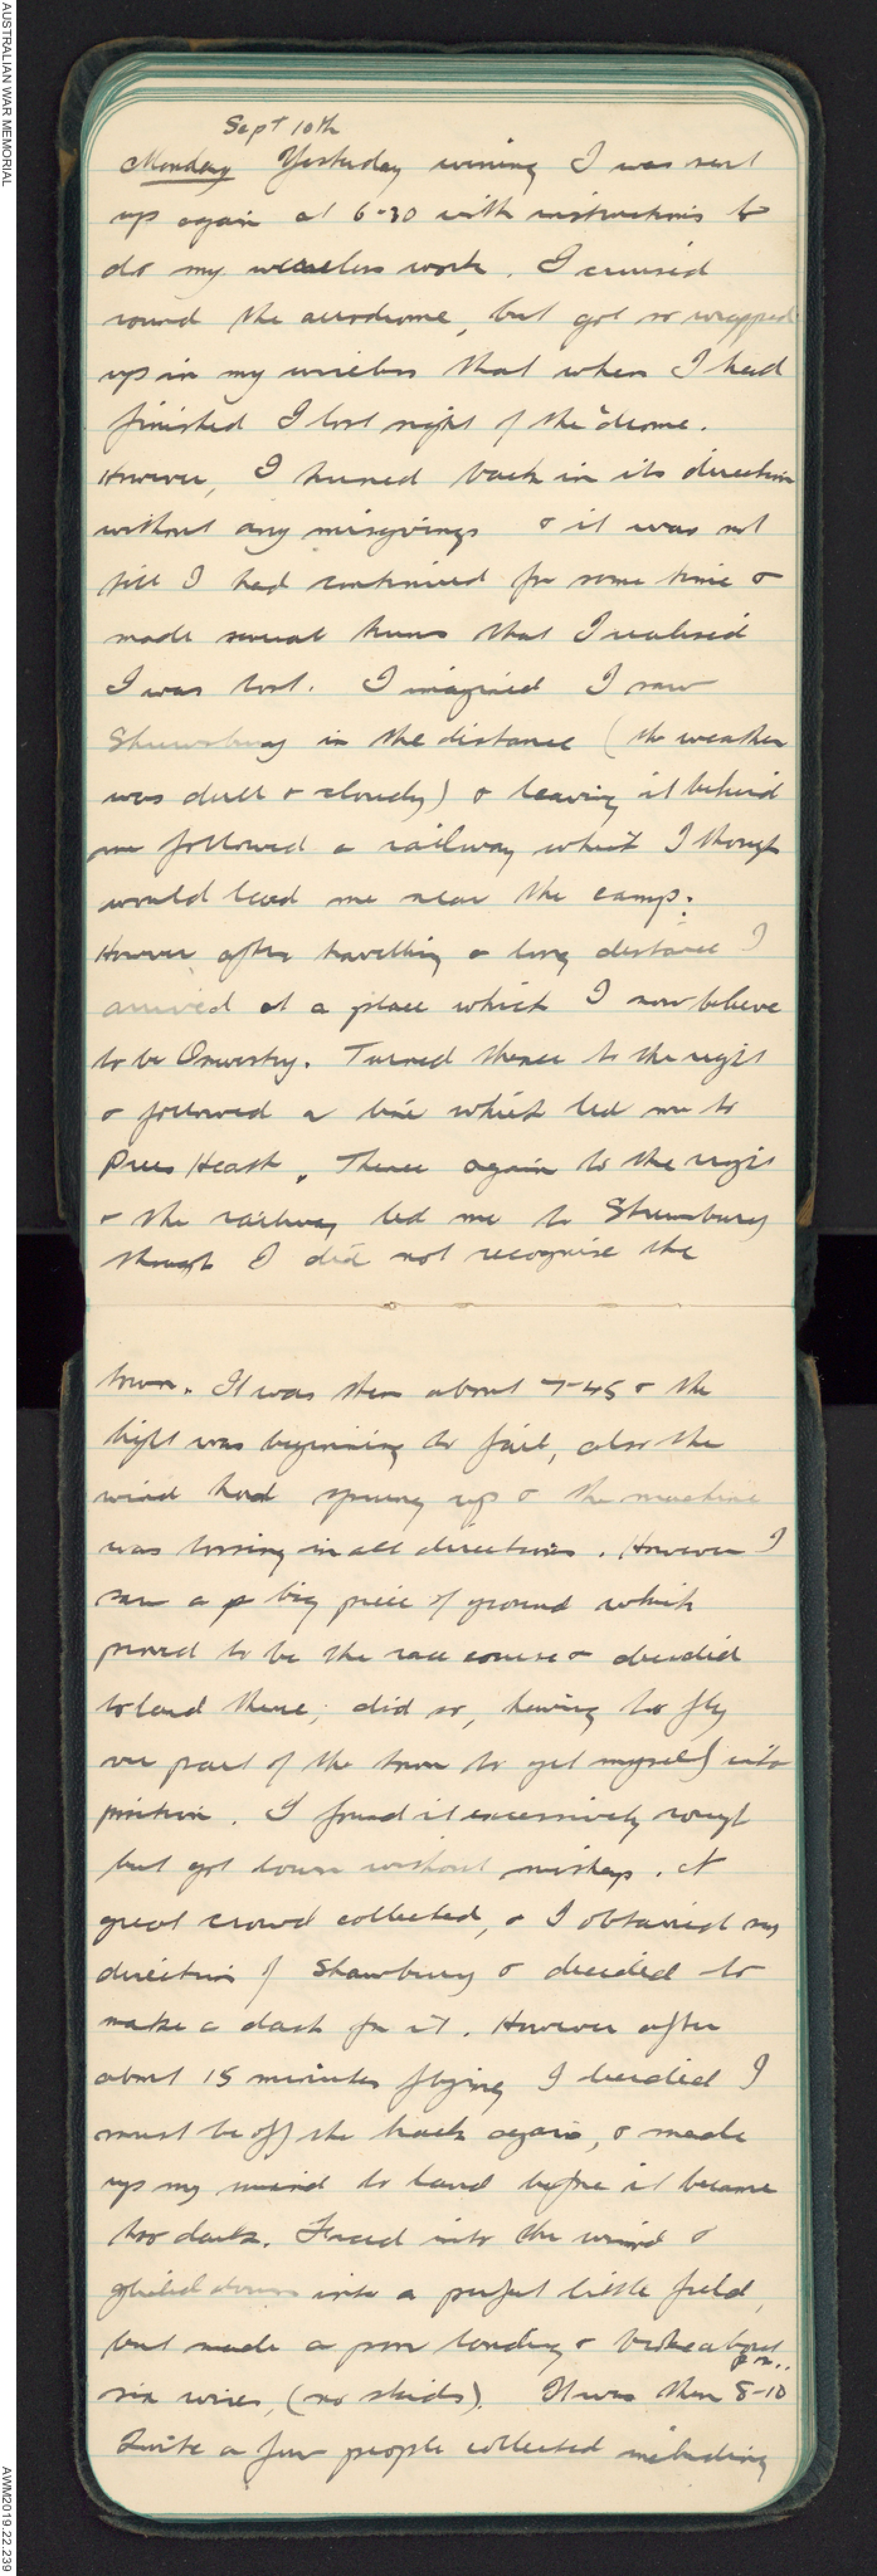 AUSTRALIAN WAR MEMORIAL
Sept 10th
Monday Yesterday evening I was sent
up again at 6-30 with instructions to
do my wireless work. I cruised
round the aerodrome, but got so wrapped
up in my wireless that when I had
finished I lost sight of the 'drome.
However, I turned back in its direction
without any misgivings & it was not
till I had continued for some time &
made several turns that I realised
I was lost. I imagined I saw
Shrewsbury in the distance (the weather
was dull & cloudy) & leaving it behind
me followed a railway which I though
would lead me near the camp.
However after travelling a long distance I
arrived at a place which I now believe
to be Oswestry. Turned thence to the right
& followed a line which led me to
Prees Heath. Thence again to the right
& the railway led me to Shrewsbury
though I did not recognise the
town. It was then about 7-45 & the
light was beginning to fail, also the
wind had sprung up & the machine
was tossing in all directions. However I
saw a big piece of ground which
proved to be the race course & decided
to land there; did so, having to fly
over part of the town to get myself into
position. I found it excessively rough
but got down without mishap. A
great crowd collected, & I obtained my
direction of Shawbury & decided to
make a dash for it. However after
about 15 minutes flying I decided I
must be off the track again, & made
up my mind to land before it became
too dark. Faced into the wind &
glided down into a perfect little field,
but made a poor landing & broke about
six wires, (no skids). It was then 8-10 p.m..
Quite a few people collected including
AWM2019.22.239